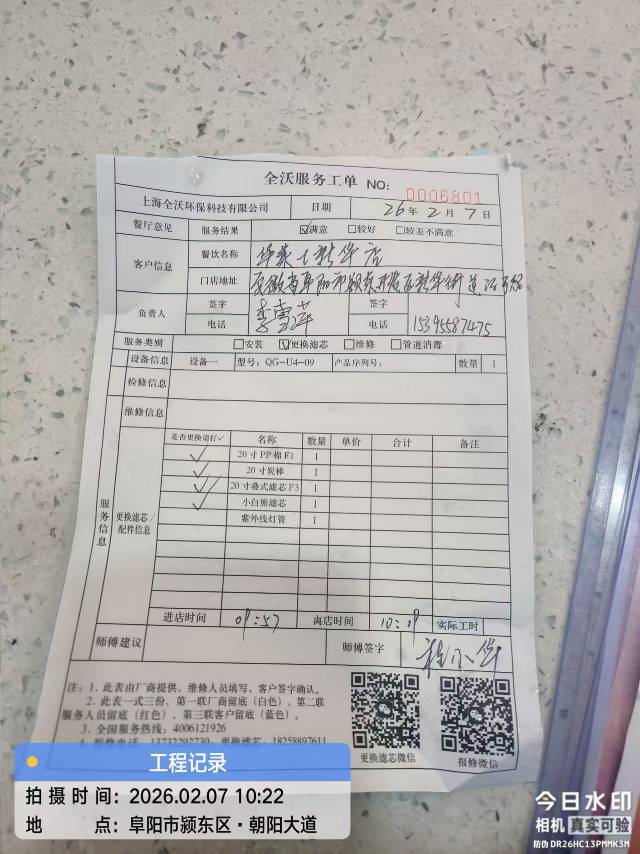 全沃服务工单 NO: 0006801
上海全沃环保科技有限公司 日期 26年2月7日
餐厅意见 服务结果 ☑满意 □较好 □较差不满意
客户信息 餐饮名称 华莱士新华店
门店地址 安徽省阜阳市颍东开发区新华街道
负责人 签字 签字
电话 电话 15395587475
服务类别 □安装 ☑更换滤芯 □维修 □管道消毒
设备信息 设备一 型号: QG-U4-09 产品序列号: 数量 1
检修信息
维修信息
服务信息
更换滤芯/配件信息
是否更换请打✓ 名称 数量 单价 合计 备注
✓ 20寸PP棉F1 1
✓ 20寸炭棒 1
✓ 20寸叠式滤芯F3 1
✓ 小白熊滤芯 1
紫外线灯管 1
进店时间 09:57 离店时间 10:19 实际工时
师傅建议 师傅签字
注: 1、此表由厂商提供、维修人员填写，客户签字确认。
2、此表一式三份，第一联厂商留底（白色）、第二联
服务人员留底（红色）、第三联客户留底（蓝色）。
3、全国服务热线: 4006121926
4、报修电话: 13732292730 更换滤芯: 18258897611
更换滤芯微信 报修微信
工程记录
拍摄时间: 2026.02.07 10:22
地点: 阜阳市颍东区·朝阳大道
今日水印
相机 真实可验
防伪 DR26HC13PMMK3M